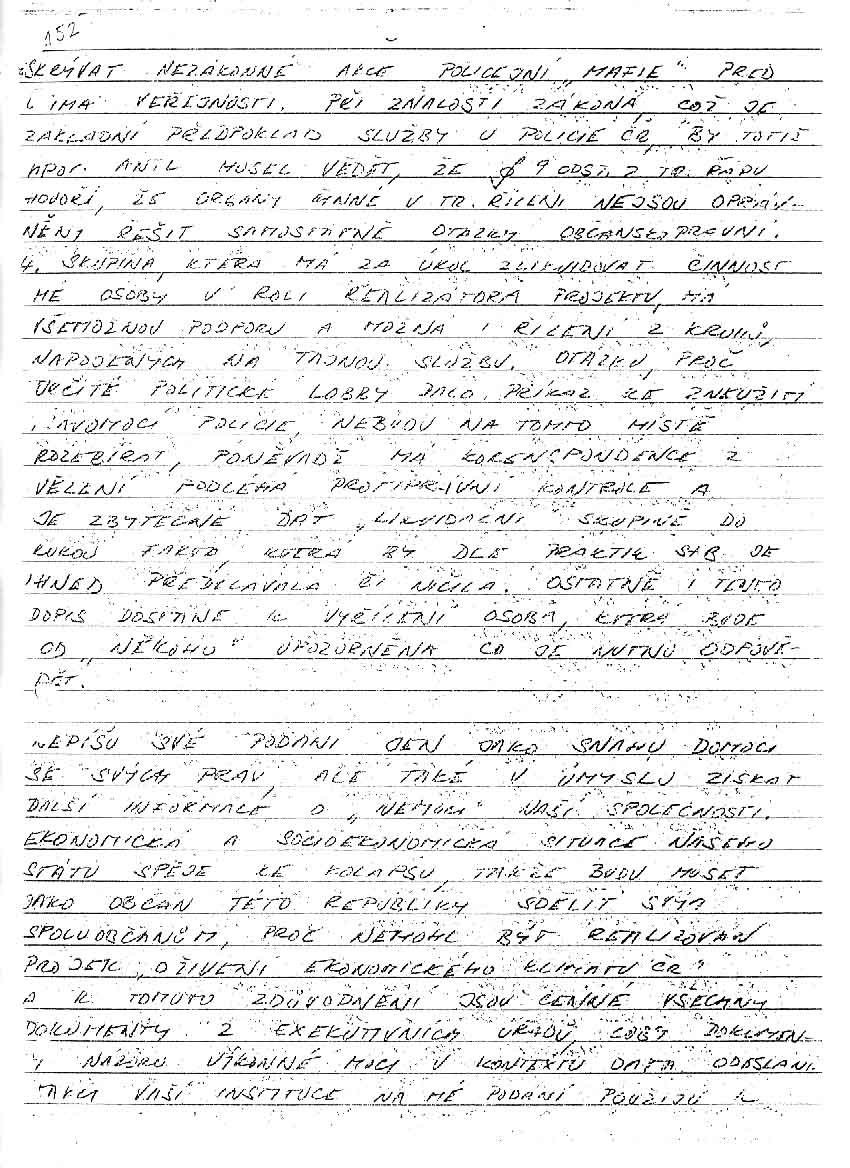 152
SKRÝVAT NEZÁKONNÉ AKCE POLICEJNÍ „MAFIE" PŘED
IMA VEŘEJNOSTI. PŘI ZNALOSTI ZÁKONA, COŽ JE
ZÁKLADNÍ PŘEDPOKLAD SLUŽBY U POLICIE ČR, BY TOTIŽ
NPOR. ANTL MUSEL VĚDĚT, ŽE § 9 ODST. 2 TR. ŘÁDU
HOVOŘÍ, ŽE ORGÁNY ČINNÉ V TR. ŘÍZENÍ NEJSOU OPRÁV-
NĚNY ŘEŠIT SAMOSTATNĚ OTÁZKY OBČANSKOPRÁVNÍ.
4. SKUPINA, KTERÁ MÁ ZA ÚKOL ZLIKVIDOVAT ČINNOST
MÉ OSOBY V ROLI REALIZÁTORA PROJEKTU, MÁ
VŠEMOŽNOU PODPORU A MOŽNÁ I ŘÍZENÍ Z KRUHŮ,
NAPOJENÝCH NA TAJNOU SLUŽBU. OTÁZKU, PROČ
URČITÉ POLITICKÉ LOBBY DALO PŘÍKAZ KE ZNEUŽITÍ
PRAVOMOCI POLICIE, NEBUDU NA TOMTO MÍSTĚ
ROZEBÍRAT, PONĚVADŽ MÁ KORENSPONDENCE Z
VĚZENÍ PODLÉHÁ PROTIPRÁVNÍ KONTROLE A
JE ZBYTEČNÉ DÁT „LIKVIDAČNÍ" SKUPINĚ DO
RUKOU FAKTA, KTERÁ BY DLE PRAKTIK STB JE
IHNED PŘEDĚLÁVALA ČI NIČILA. OSTATNĚ I TENTO
DOPIS DOSTANE K VYŘÍZENÍ OSOBA, KTERÁ BUDE
OD „NĚKOHO" UPOZORNĚNA CO JE NUTNO ODPOVĚ-
DĚT.
NEPÍŠU SVÉ PODÁNÍ JEN JAKO SNAHU DOMOCI
SE SVÝCH PRÁV, ALE TAKÉ V ÚMYSLU ZÍSKAT
DALŠÍ INFORMACE O „NEMOCI" NAŠÍ SPOLEČNOSTI.
EKONOMICKÁ A SOCIOEKONOMICKÁ SITUACE NAŠEHO
STÁTU SPĚJE KE KOLAPSU, TAKŽE BUDU MUSET
JAKO OBČAN TÉTO REPUBLIKY SDĚLIT SVÝM
SPOLUOBČANŮM, PROČ NEMOHL BÝT REALIZOVÁN
PROJEKT „OŽIVENÍ EKONOMICKÉHO KLIMATU ČR"
A K TOMUTO ZDŮVODNĚNÍ JSOU CENNÉ VŠECHNY
DOKUMENTY Z EXEKUTIVNÍCH ÚŘADŮ, COBY DOKUMEN-
Y NÁZORU VÝKONNÉ MOCI V KONTEXTU DATA ODESLÁNÍ.
VAŠÍ INSTITUCE NA MÉ PODÁNÍ POUŽIJU K